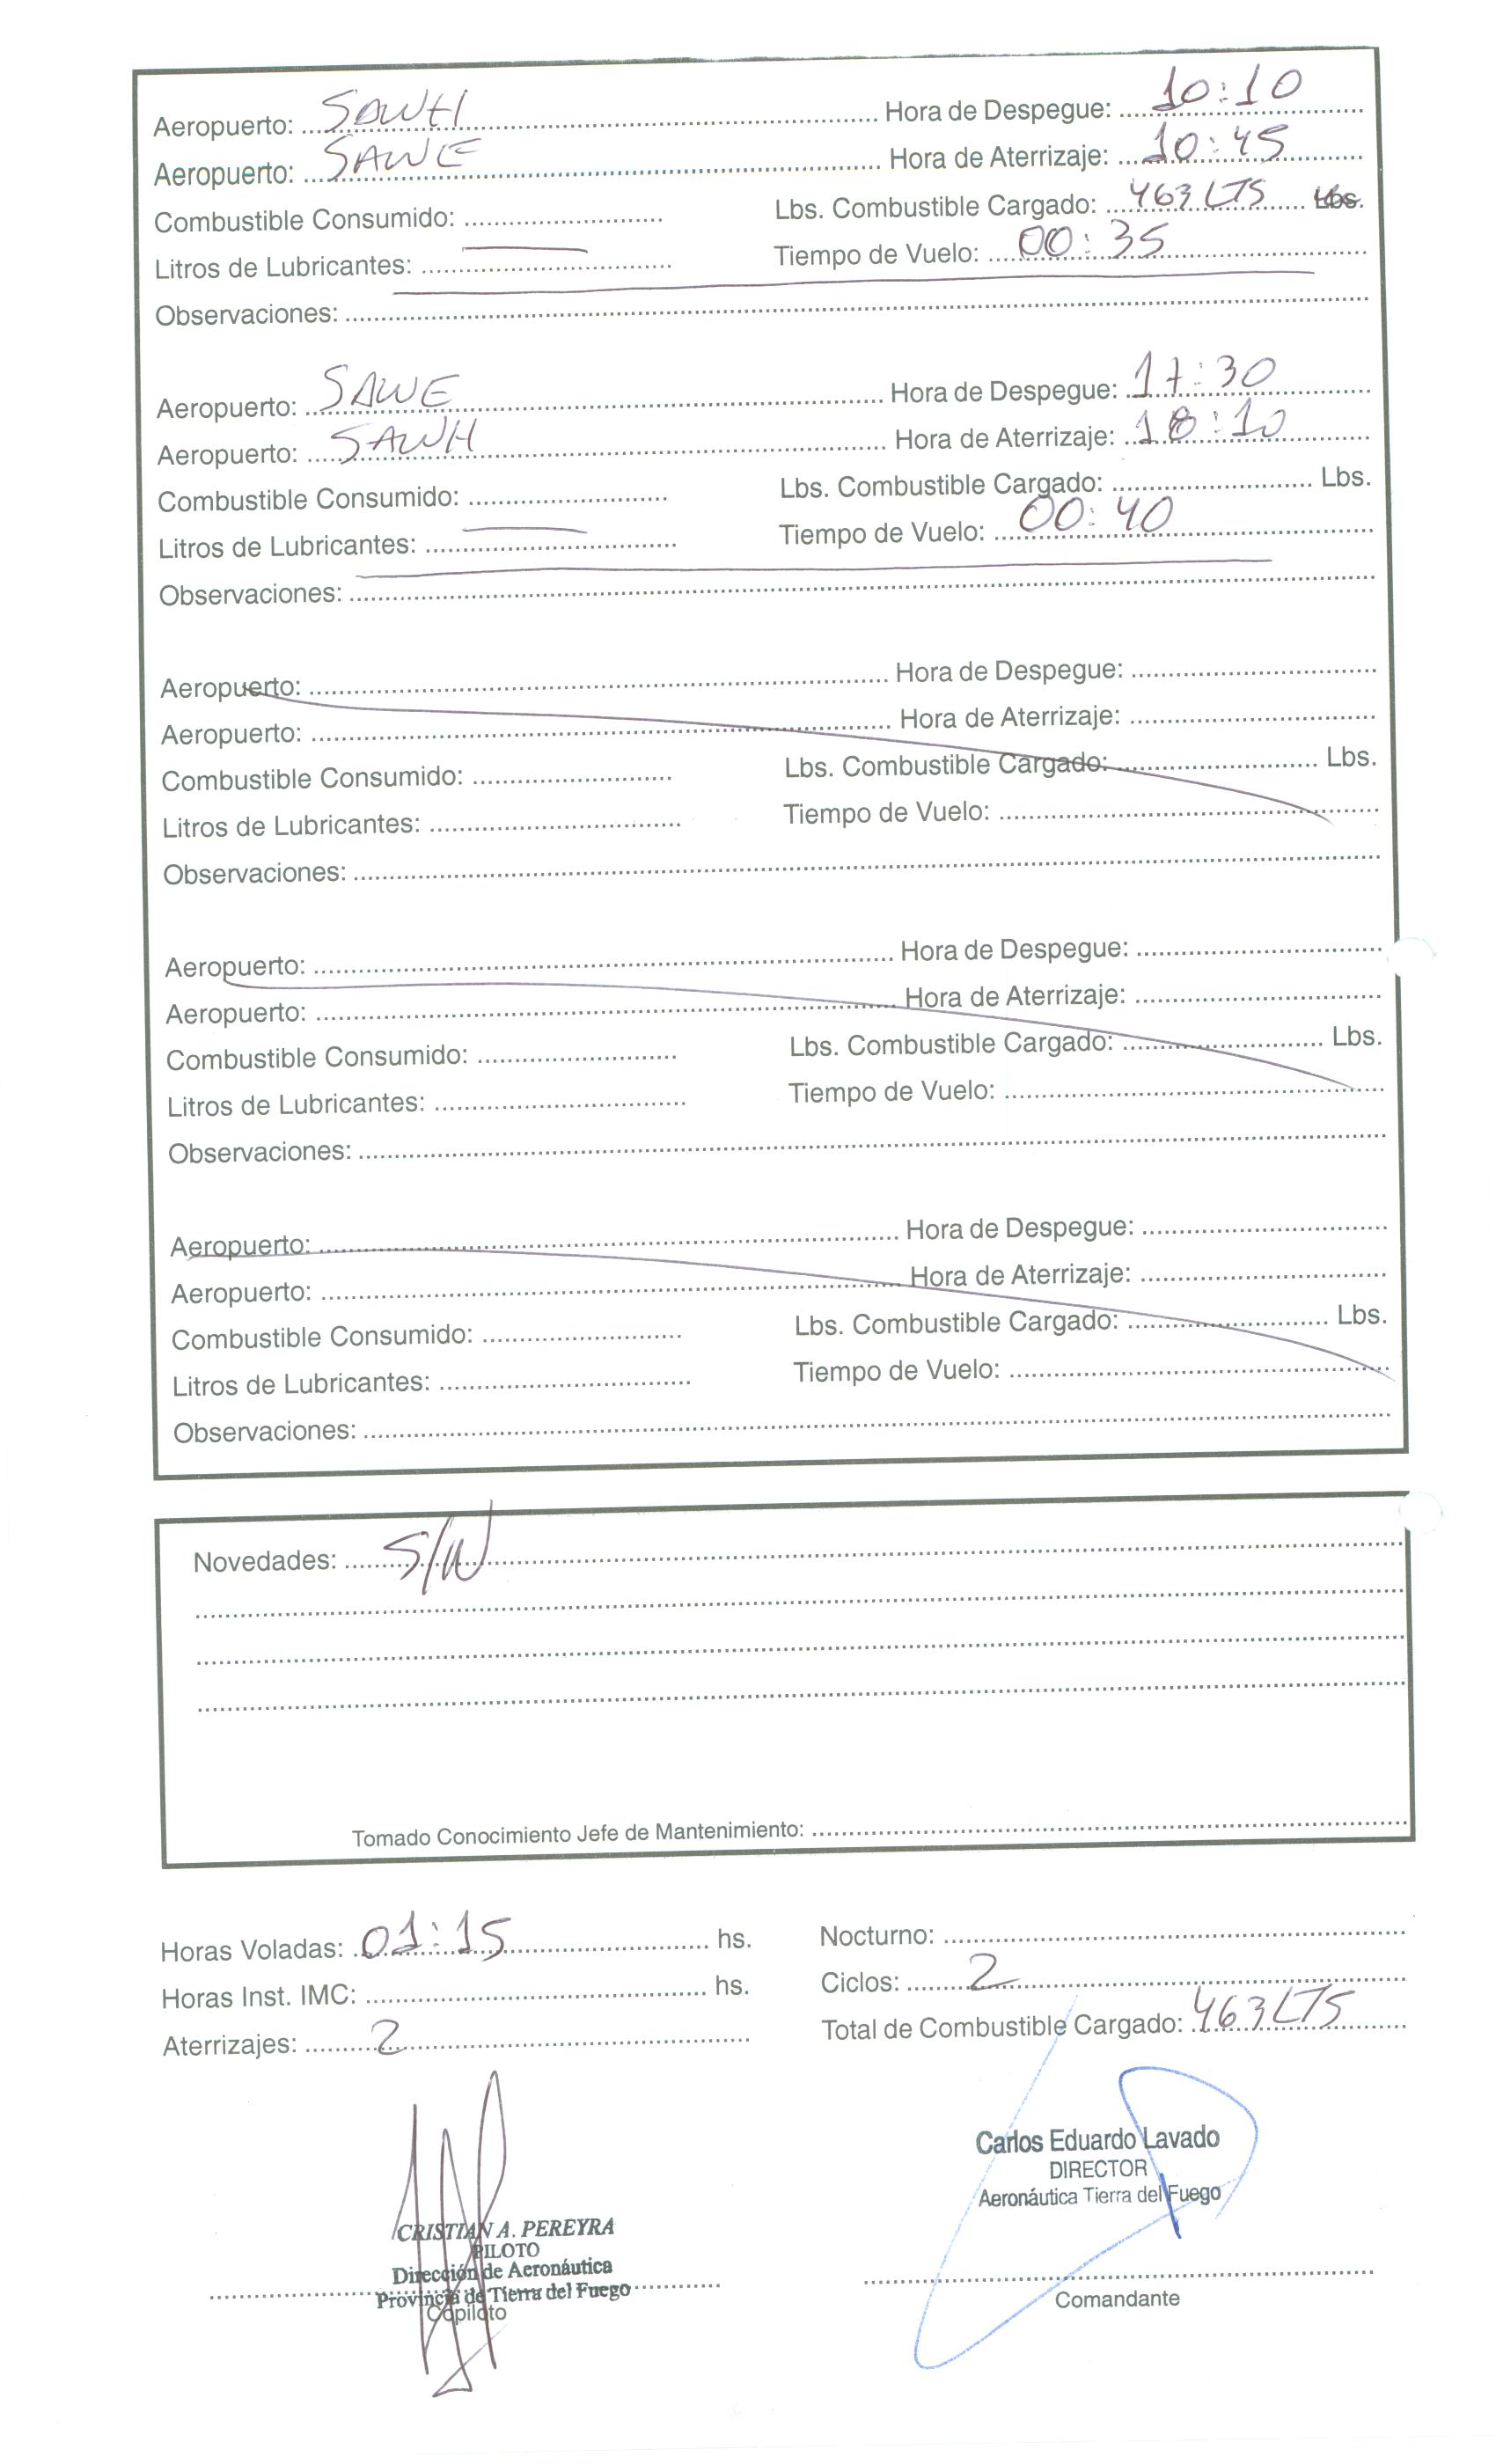 Aeropuerto: SAWH Hora de Despegue: 10:10
Aeropuerto: SAWE Hora de Aterrizaje: 10:45
Combustible Consumido: Lbs. Combustible Cargado: 463 LTS Lbs.
Litros de Lubricantes: Tiempo de Vuelo: 00:35
Observaciones:
Aeropuerto: SAWE Hora de Despegue: 17:30
Aeropuerto: SAWH Hora de Aterrizaje: 18:10
Combustible Consumido: Lbs. Combustible Cargado: Lbs.
Litros de Lubricantes: Tiempo de Vuelo: 00:40
Observaciones:
Aeropuerto: Hora de Despegue:
Aeropuerto: Hora de Aterrizaje:
Combustible Consumido: Lbs. Combustible Cargado: Lbs.
Litros de Lubricantes: Tiempo de Vuelo:
Observaciones:
Aeropuerto: Hora de Despegue:
Aeropuerto: Hora de Aterrizaje:
Combustible Consumido: Lbs. Combustible Cargado: Lbs.
Litros de Lubricantes: Tiempo de Vuelo:
Observaciones:
Aeropuerto: Hora de Despegue:
Aeropuerto: Hora de Aterrizaje:
Combustible Consumido: Lbs. Combustible Cargado: Lbs.
Litros de Lubricantes: Tiempo de Vuelo:
Observaciones:
Novedades: S/N
Tomado Conocimiento Jefe de Mantenimiento:
Horas Voladas: 01:15 hs. Nocturno:
Horas Inst. IMC: hs. Ciclos: 2
Aterrizajes: 2 Total de Combustible Cargado: 463 LTS
CRISTIAN A. PEREYRA
PILOTO
Dirección de Aeronáutica
Provincia de Tierra del Fuego
Copiloto
Carlos Eduardo Lavado
DIRECTOR
Aeronáutica Tierra del Fuego
Comandante